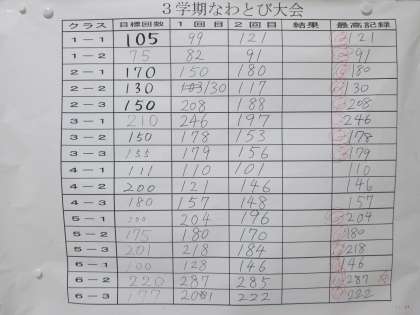 3学期なわとび大会
クラス 目標回数 1回目 2回目 結果 最高記録
1－1 105 99 121 121
1－2 75 82 91 91
2－1 170 150 180 180
2－2 130 130 117 130
2－3 150 208 188 208
3－1 210 246 197 246
3－2 150 178 153 178
3－3 155 179 156 179
4－1 111 110 101 110
4－2 200 121 146 146
4－3 180 157 148 157
5－1 200 204 196 204
5－2 175 180 170 180
5－3 201 218 184 218
6－1 100 128 146 146
6－2 220 287 285 287
6－3 177 201 222 222